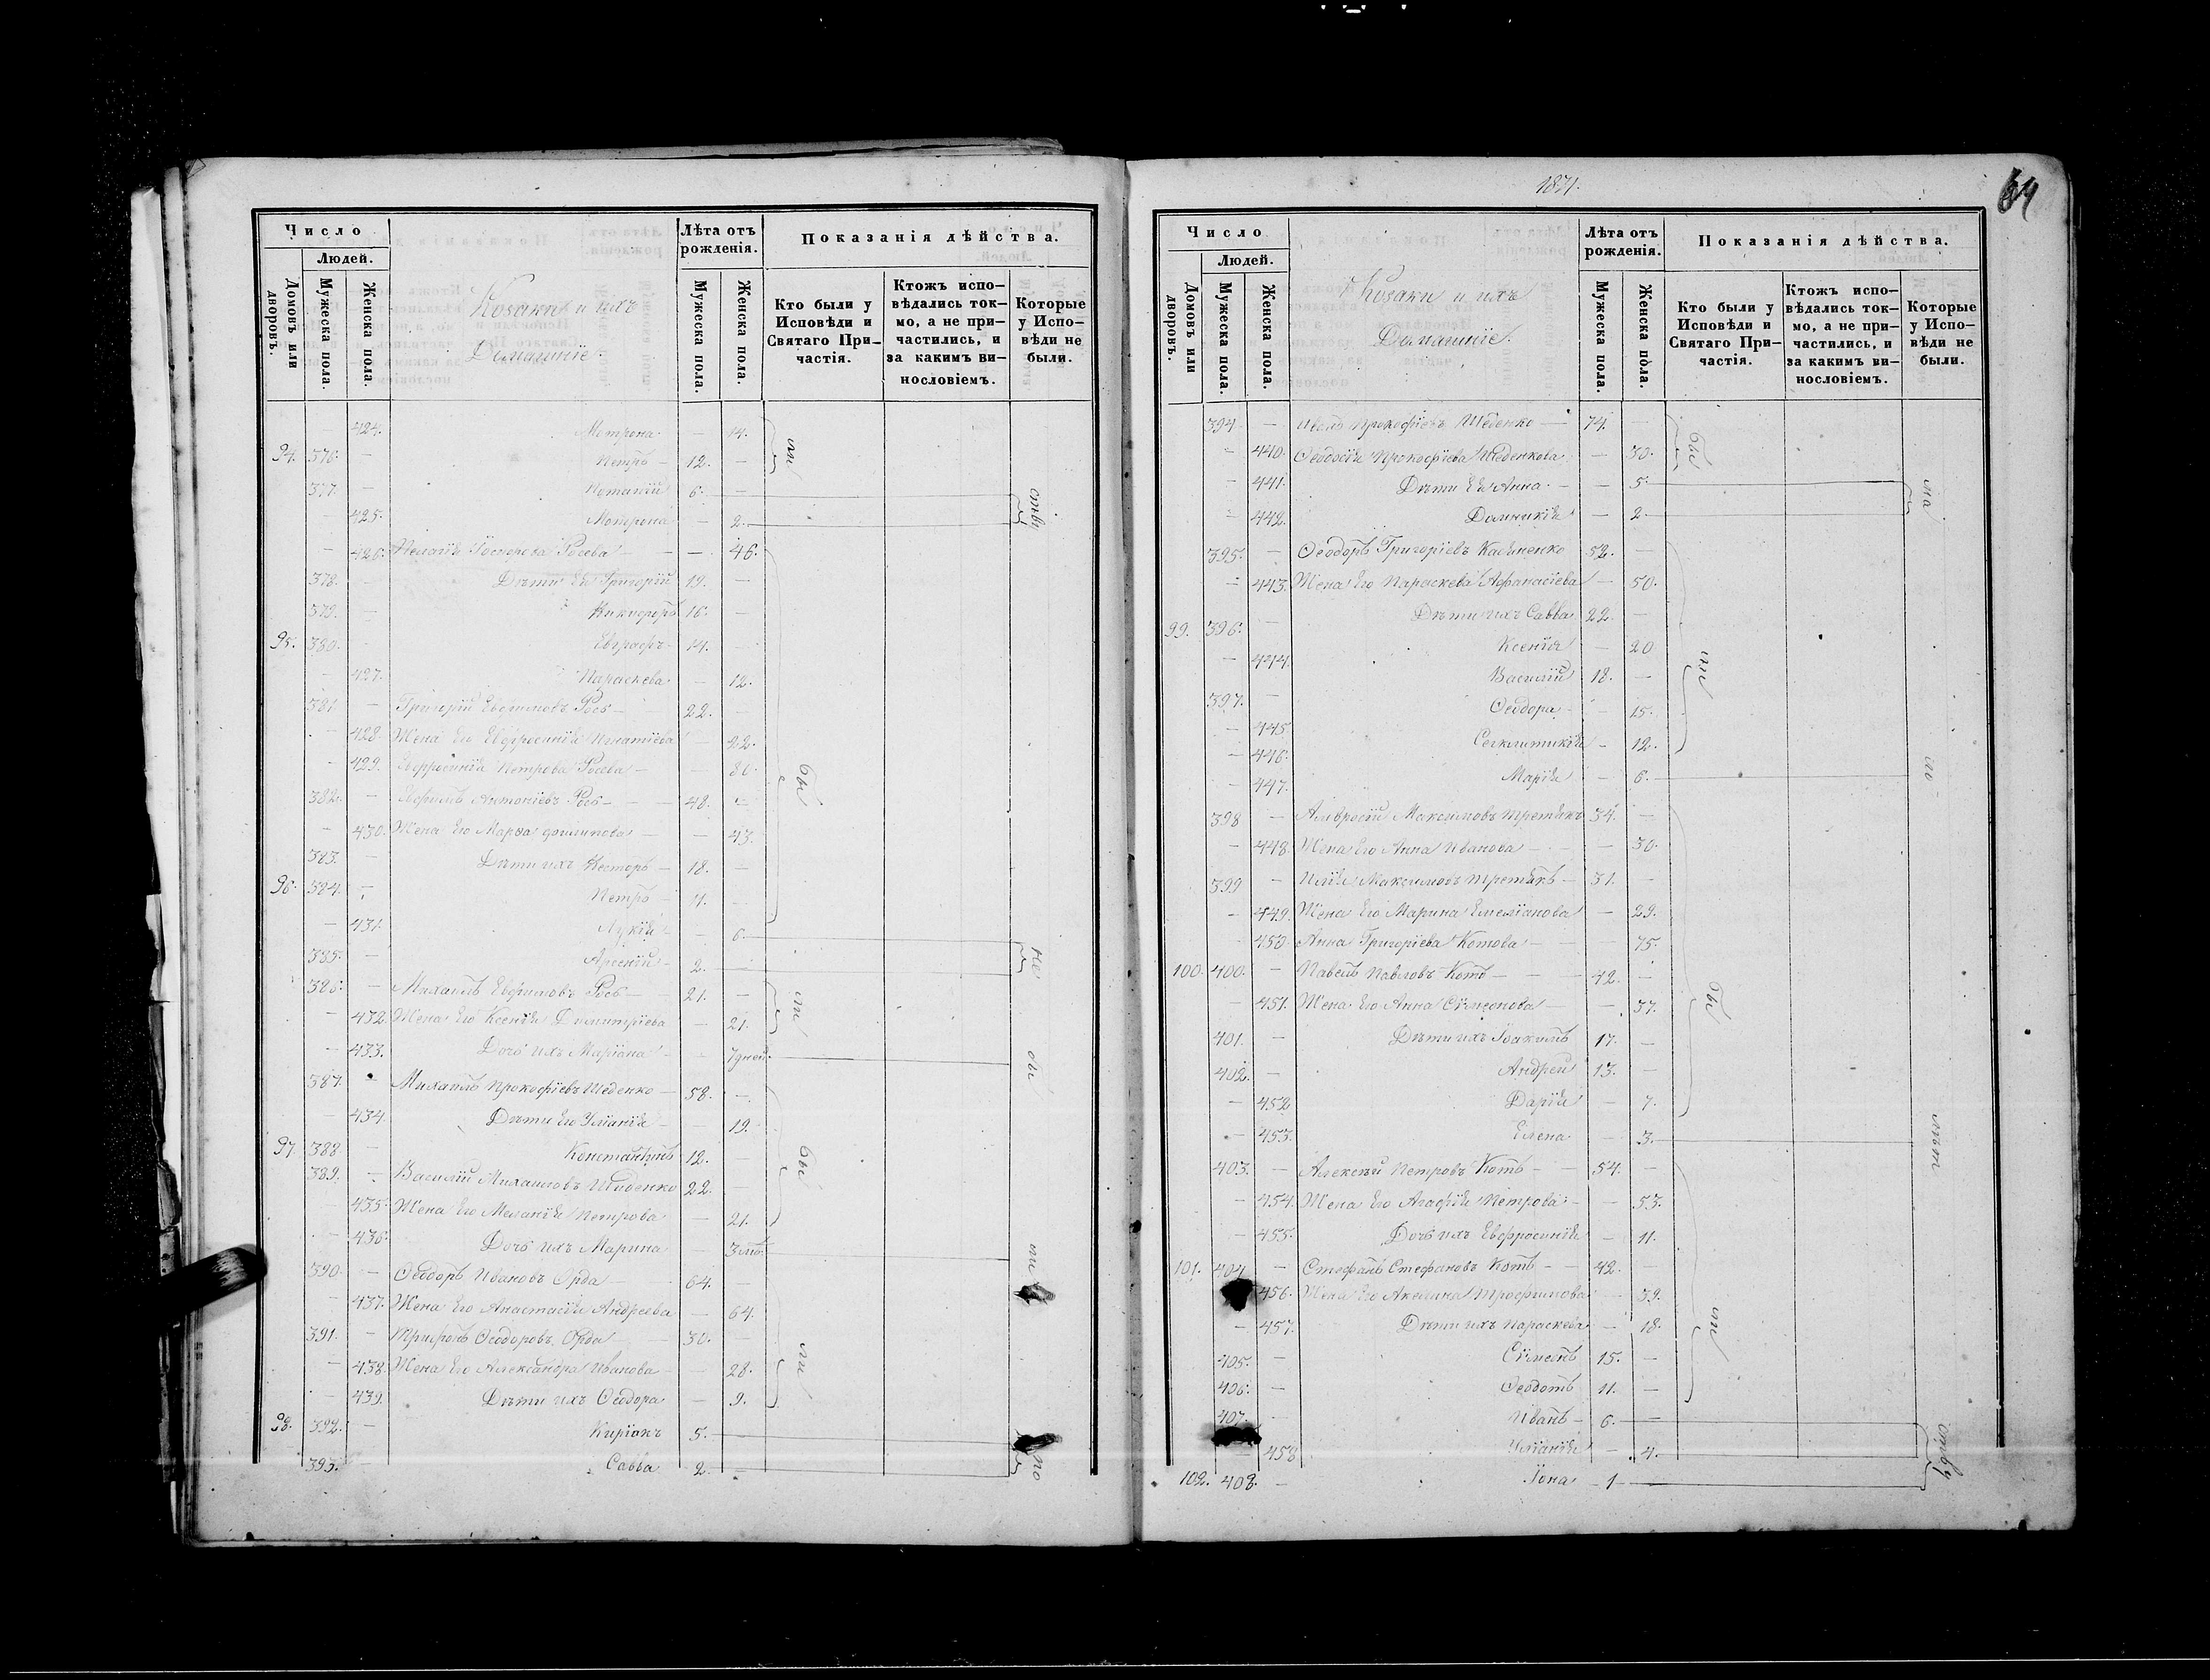 Число
Людей.
Домовъ или дворовъ.
Мужеска пола.
Женска пола.
Козаки и ихъ
Домашніе.
Лѣта отъ рожденія.
Мужеска пола.
Женска пола.
Показанія дѣйства.
Кто были у Исповѣди и Святаго При-частія.
Ктожъ испо-вѣдались ток-мо, а не при-частились, и за какимъ ви-нословіемъ.
Которые у Испо-вѣди не были.
— 424. Мотрона — 14.
94. 376. — Петръ — 12. —
377. — 6. —
— 425. Мотрона — 2.
— 426. — 46.
378. — Дѣти Ея Григорій 19. —
379. — Никифоръ 16. —
95. 380. — Евграфъ 14. —
— 427. Параскева — 12.
381. — Григорій 22. —
— 428. Жена Его Евфросинія Игнатіева — 22.
— 429. Евфросинія Петрова — 80.
382. — Евфимъ Антоніевъ 48. —
— 430. Жена Его Марѳа Филипова — 43.
383. — Дѣти ихъ Несторъ — 18. —
96. 384. — Петръ 11. —
— 431. Лукія — 6.
385. — Арсеній — 2. —
386. — Михаилъ Евфимовъ 21. —
— 432. Жена Его Ксенія Димитріева — 21.
— 433. Дочь ихъ Маріана — 7 дней.
387. — Михаилъ Прокофіевъ Шеденко — 58. —
— 434. Дѣти Его Уліанія — 19.
97. 388. — Константинъ 12. —
389. — Василій Михаиловъ Шиденко 22. —
— 435. Жена Его Меланія Петрова — 21.
— 436. Дочь ихъ Марина — 3
390. — Ѳеодоръ Ивановъ Орда 64. —
— 437. Жена Его Анастасія Андреева — 64.
391. — Трифонъ Ѳеодоровъ Орда 30. —
— 438. Жена Его Александра Иванова — 28.
— 439. Дѣти ихъ Ѳеодора — 9.
98. 392. — Киріакъ 5.
393. — Савва 2. —
1871.
64
Число
Людей.
Домовъ или дворовъ.
Мужеска пола.
Женска пола.
Козаки и ихъ
Домашніе.
Лѣта отъ рожденія.
Мужеска пола.
Женска пола.
Показанія дѣйства.
Кто были у Исповѣди и Святаго При-частія.
Ктожъ испо-вѣдались ток-мо, а не при-частились, и за какимъ ви-нословіемъ.
Которые у Испо-вѣди не были.
394 — Иванъ Прокофіевъ Шеденко — 74. —
— 440. Ѳеодосія Прокофіева Шеденкова — 30.
— 441. Дѣти Ея Анна — 5.
— 442. Домникія — 2.
395. — Ѳеодоръ Григоріевъ 52. —
— 443. Жена Его Параскева Афанасіева — 50.
99. 396. — Дѣти ихъ Савва 22. —
— 444. Ксенія — 20
397. — Василій 18. —
— 445. Ѳеодора — 15.
— 446. — 12.
— 447. Марія — 6.
398 — Амвросій Максимовъ Третякъ 34. —
— 448. Жена Его Анна Иванова — 30.
399 — Илія Максимовъ Третякъ — 31. —
— 449. Жена Его Марина Емеліанова — 29.
— 450. Анна Григоріева Котова — 75.
100. 400. — Павелъ Павловъ Котъ — 42. —
— 451. Жена Его Анна Сѵмеонова — 37.
401. — Дѣти ихъ Іоакимъ 17. —
402. — Андрей 13. —
— 452 Дарія — 7.
— 453. Елена — 3.
403. — Алексѣй Петровъ Котъ — 54. —
— 454. Жена Его Агафія Петрова — 53.
— 455. Дочь ихъ Евфросинія — 11.
101. 404 — Стефанъ Стефановъ Котъ — 42. —
456. Жена Его Акилина Трофимова — 39.
— 457. Дѣти ихъ Параскева — 18.
405. — Сѵмеонъ 15. —
406. — Ѳеодотъ 11. —
407. — Иванъ — 6. —
458 Уліанія — 4.
102. 408. — Іона — 1 —